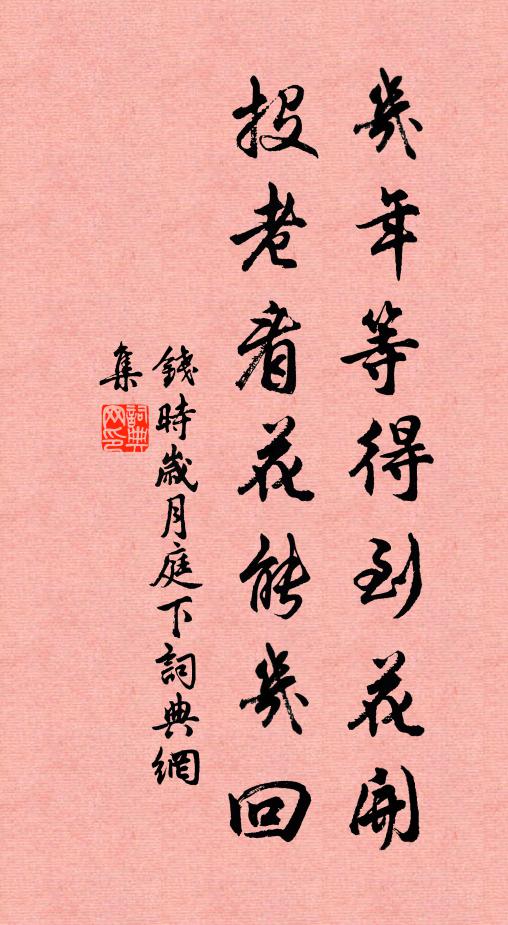 幾年等得到花開
投老看花能幾回
錢時歲月庭下詞典網
集
詞典
网印